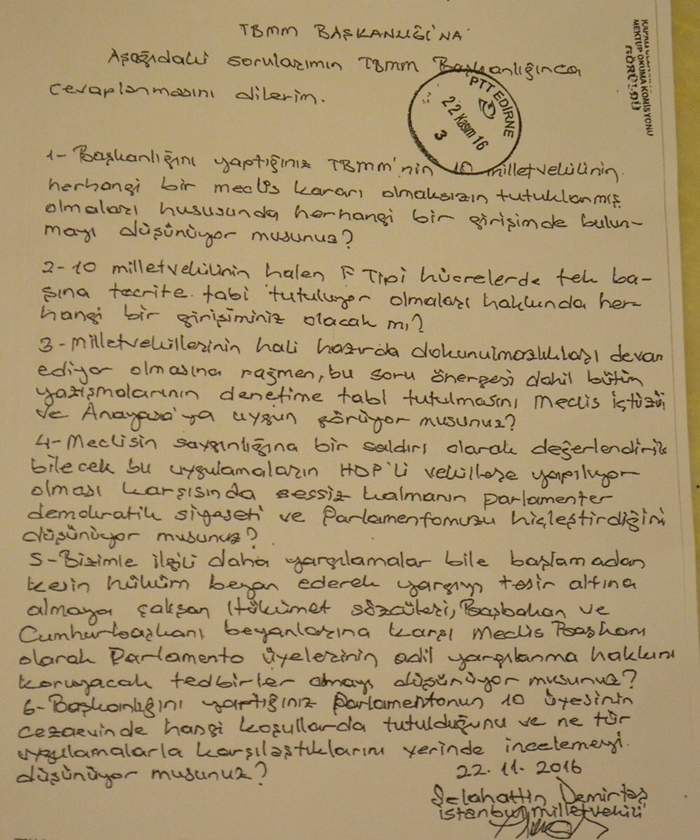 TBMM BAŞKANLIĞI'NA
Aşağıdaki sorularımın TBMM Başkanlığınca
cevaplanmasını dilerim.
PTT EDİRNE
22 Kasım 16
3
MEKTUP OKUMA KOMİSYONU
GÖRÜLDÜ
1- Başkanlığını yaptığınız TBMM'nin 10 milletvekilinin
herhangi bir meclis kararı olmaksızın tutuklanmış
olmaları hususunda herhangi bir girişimde bulun-
mayı düşünüyor musunuz?
2- 10 milletvekilinin halen F Tipi hücrelerde tek ba-
şına tecrite tabi tutuluyor olmaları hakkında her-
hangi bir girişiminiz olacak mı?
3- Milletvekillerinin hali hazırda dokunulmazlıkları devam
ediyor olmasına rağmen, bu soru önergesi dahil bütün
yazışmalarının denetime tabi tutulmasını Meclis İçtüzüğü
ve Anayasa'ya uygun görüyor musunuz?
4- Meclisin saygınlığına bir saldırı olarak değerlendirile
bilecek bu uygulamaların HDP'li vekillere yapılıyor
olması karşısında sessiz kalmanın parlamenter
demokratik siyaseti ve Parlamentomuzu hiçleştirdiğini
düşünüyor musunuz?
5- Bizimle ilgili daha yargılamalar bile başlamadan
kesin hüküm beyan ederek yargıyı tesir altına
almaya çalışan Hükümet sözcüleri, Başbakan ve
Cumhurbaşkanı beyanlarına karşı Meclis Başkanı
olarak Parlamento üyelerinin adil yargılanma hakkını
koruyacak tedbirler almayı düşünüyor musunuz?
6- Başkanlığını yaptığınız Parlamentonun 10 üyesinin
cezaevinde hangi koşullarda tutulduğunu ve ne tür
uygulamalarla karşılaştıklarını yerinde incelemeyi
düşünüyor musunuz?
22.11.2016
Selahattin Demirtaş
İstanbul milletvekili